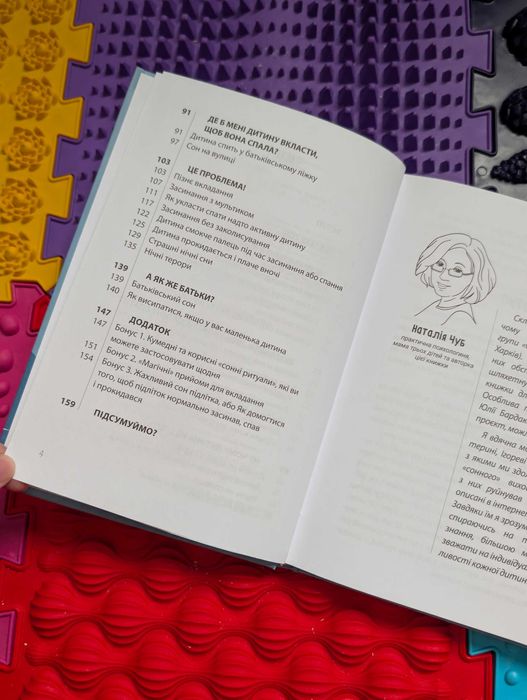 91 ДЕ Б МЕНІ ДИТИНУ ВКЛАСТИ,
ЩОБ ВОНА СПАЛА?
91 Дитина спить у батьківському ліжку
97 Сон на вулиці
103 ЦЕ ПРОБЛЕМА!
103 Пізнє вкладання
107 Засинання з мультиком
111 Як укласти спати надто активну дитину
117 Засинання без заколисування
122 Дитина смокче палець під час засинання або спання
125 Дитина прокидається і плаче вночі
129 Страшні нічні сни
135 Нічні терори
139 А ЯК ЖЕ БАТЬКИ?
139 Батьківський сон
140 Як висипатися, якщо у вас маленька дитина
147 ДОДАТОК
147 Бонус 1. Кумедні та корисні «сонні ритуали», які ви
можете застосовувати щодня
151 Бонус 2. «Магічні» прийоми для вкладання
154 Бонус 3. Жахливий сон підлітка, або Як домогтися
того, щоб підліток нормально засинав, спав
і прокидався
159 ПІДСУМУЙМО?
4
Наталія Чуб
практична психологиня,
мама трьох дітей та авторка
цієї книжки
Скл
чому
групи «
Харків)
них обст
шляхетн
книжки дл
Особлива п
Юлії Бардак
проєкт, мож
Я вдячна м
терині, Ігореві
з якими ми здо
«сонного» вихо
з них руйнував
описані в інтернет
Завдяки їм я зрозу
спираючись на п
знання, більшою м
зважати на індивідуа
ливості кожної дитин